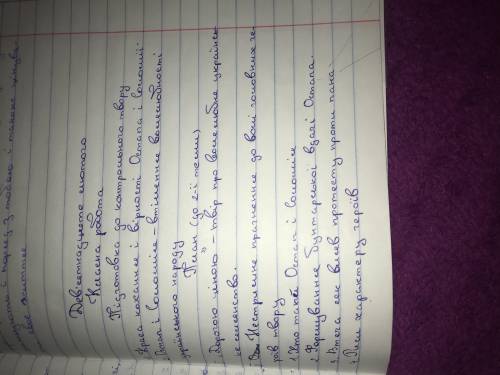 і порив з тобою і
своє життя
Дев'ятнадцяте лютого
Класна робота
Підготовка до контрольного твору
Краса кохання і вірності Остапа і Соломії
Остап і Соломія - втілення волелюбності
українського народу
План (до 2-ї теми)
"Дорогою ціною" - твір про волелюбне українсь-
ке селянство.
Нестримне прагнення до волі головних ге-
роїв твору
Хто такі Остап і Соломія
Формування бунтарської вдачі Остапа.
Втеча сек вияв протесту проти пана.
Риси характеру героїв